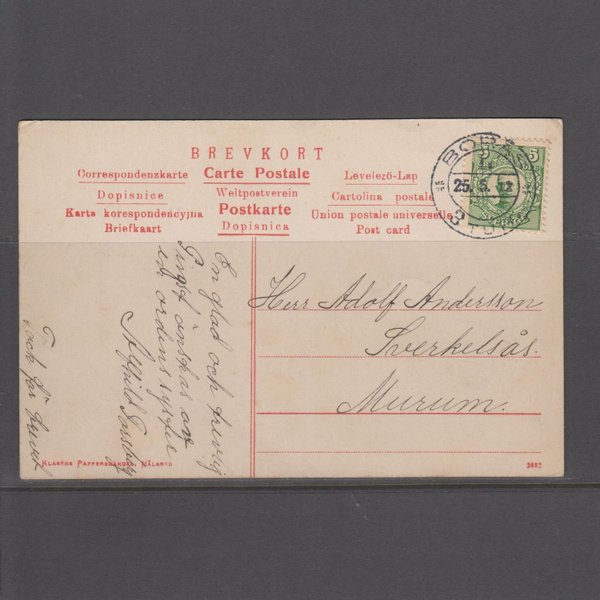 BREVKORT
Correspondenzkarte Carte Postale Levelező-Lap
Dopisnice Weltpostverein Cartolina postale
Karta korespondencyjna Postkarte Union postale universelle
Briefkaart Dopisnica Post card
25.5.12
5
En glad och trevlig
Pingst önskas av
en ordenssyster
Herr Adolf Andersson
Sverkelsås.
Murum.
Tack för brevet
Klaréns Pappershandel, Målsryd
2692